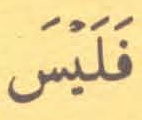 فَلَيْسَ